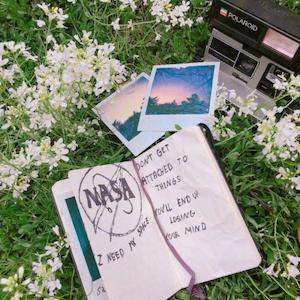 POLAROID
NASA
I NEED MY SPACE
DON'T GET
ATTACHED TO
THINGS
YOU'LL END UP
LOSING
YOUR MIND